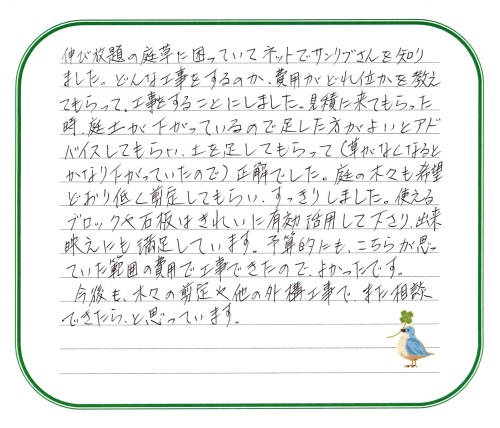 伸び放題の庭草に困っていてネットでサンリブさんを知り
ました。どんな工事をするのか、費用がどれ位かを教え
てもらって、工事をすることにしました。見積に来てもらった
時、庭土が下がっているので足した方がよいとアド
バイスしてもらい、土を足してもらって(草がなくなると
かなり下がっていたので)正解でした。庭の木々も希望
どおり低く剪定してもらい、すっきりしました。使える
ブロックや石板はきれいに有効活用して下さり、出来
映えにも満足しています。予算的にも、こちらが思っ
ていた範囲の費用で工事できたので、よかったです。
今後も、木々の剪定や他の外構工事で、また相談
できたら、と思っています。